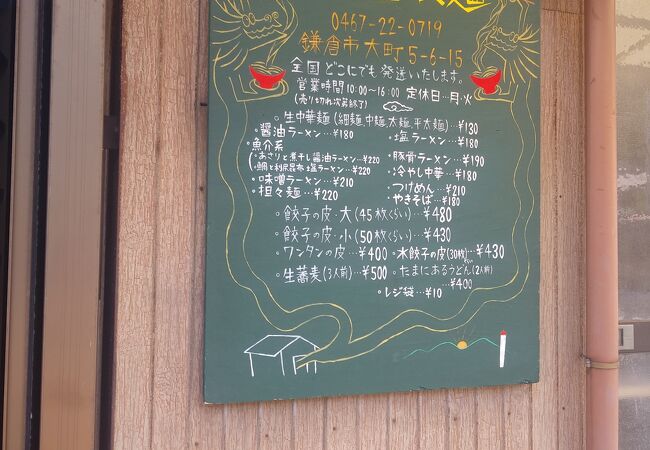 麺
0467-22-0719
鎌倉市大町5-6-15
全国どこにでも発送いたします。
営業時間10:00〜16:00 定休日…月・火
(売り切れ次第終了)
・生中華麺(細麺.中麺.太麺.平太麺)…¥130
・醤油ラーメン…¥180
・塩ラーメン…¥180
・魚介系
(・あさりと煮干し醤油ラーメン…¥220
・鯛と利尻昆布塩ラーメン…¥220
・豚骨ラーメン…¥190
・冷やし中華…¥180
・味噌ラーメン…¥210
・つけめん…¥210
・担々麺…¥220
・やきそば…¥180
・餃子の皮・大(45枚くらい)…¥480
・餃子の皮・小(50枚くらい)…¥430
・ワンタンの皮…¥400
・水餃子の皮(30枚くらい)…¥430
・生蕎麦(3人前)…¥500
・たまにあるうどん(2人前)
…¥400
・レジ袋…¥10